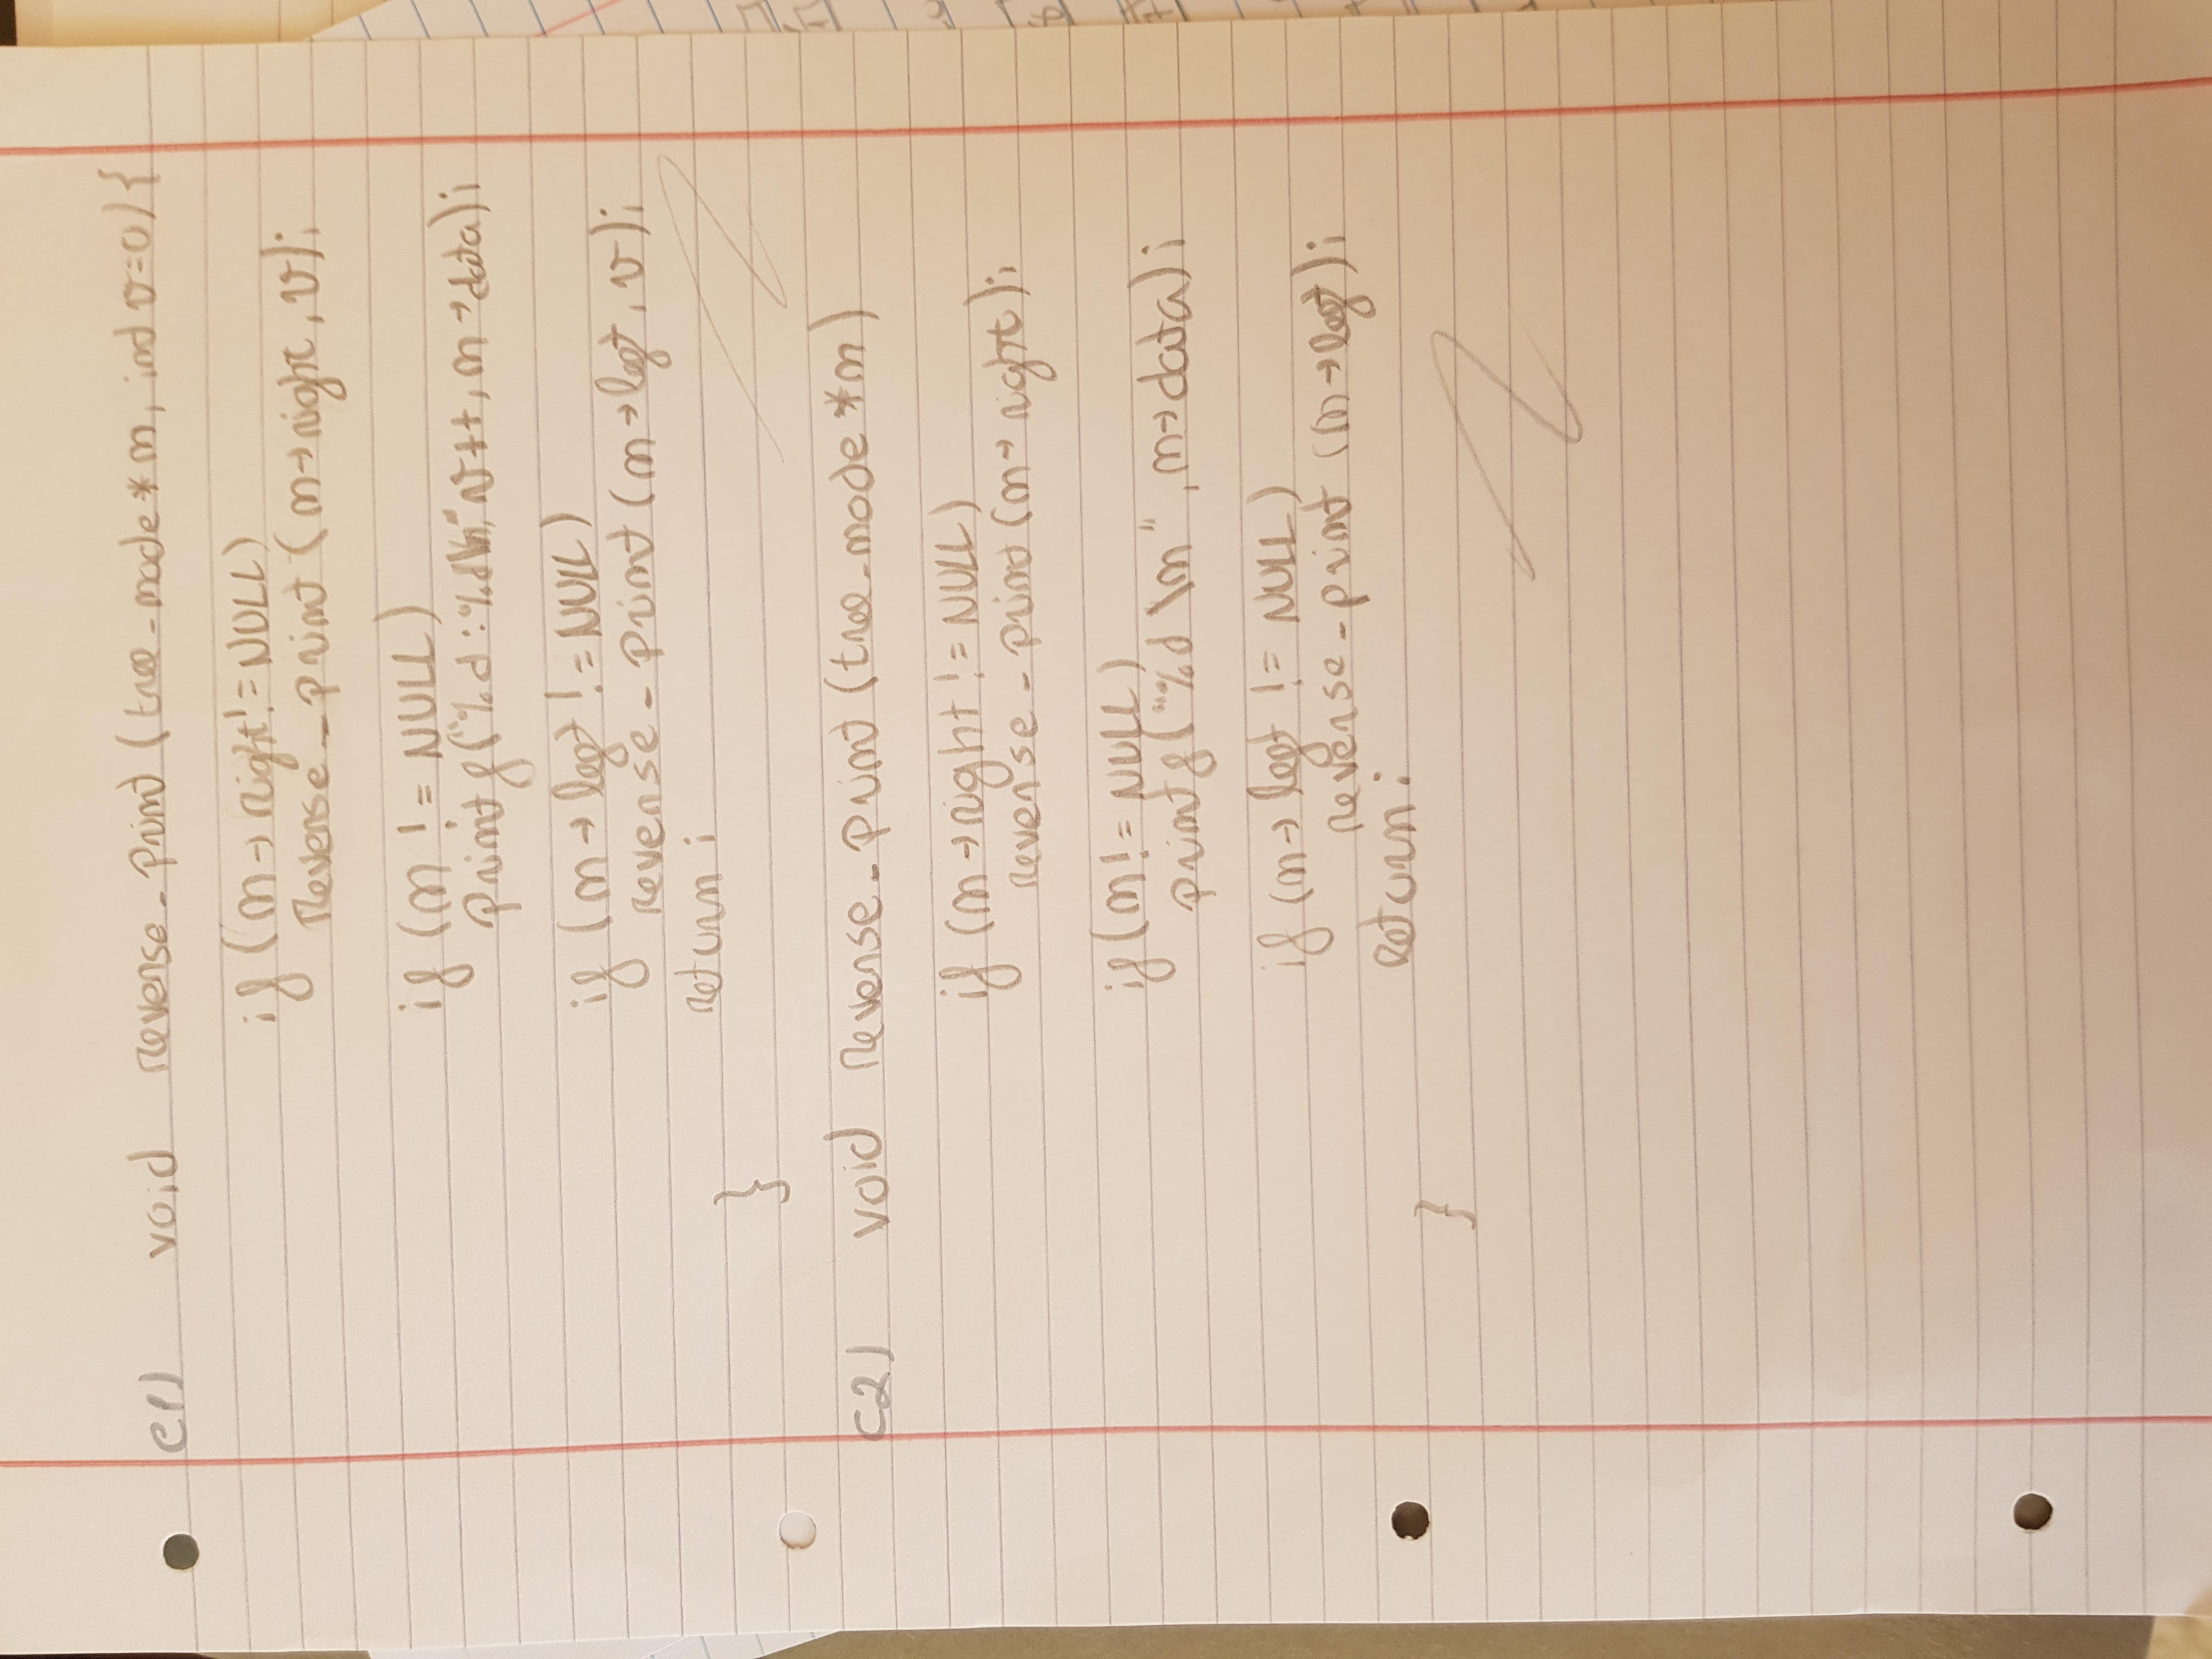 c1) void reverse_print (tree_node * n, int v=0) {
if (n→right != NULL)
Reverse_print (n→right, v);
if (n != NULL)
printf("%d : %d\n", v++, n→data);
if (n→left != NULL)
reverse_print (n→left, v);
return;
}
c2) void reverse_print (tree_node *n)
if (n→right != NULL)
reverse_print (n→right);
if (n != NULL)
printf("%d \n", n→data);
if (n→left != NULL)
reverse_print (n→left);
return;
}